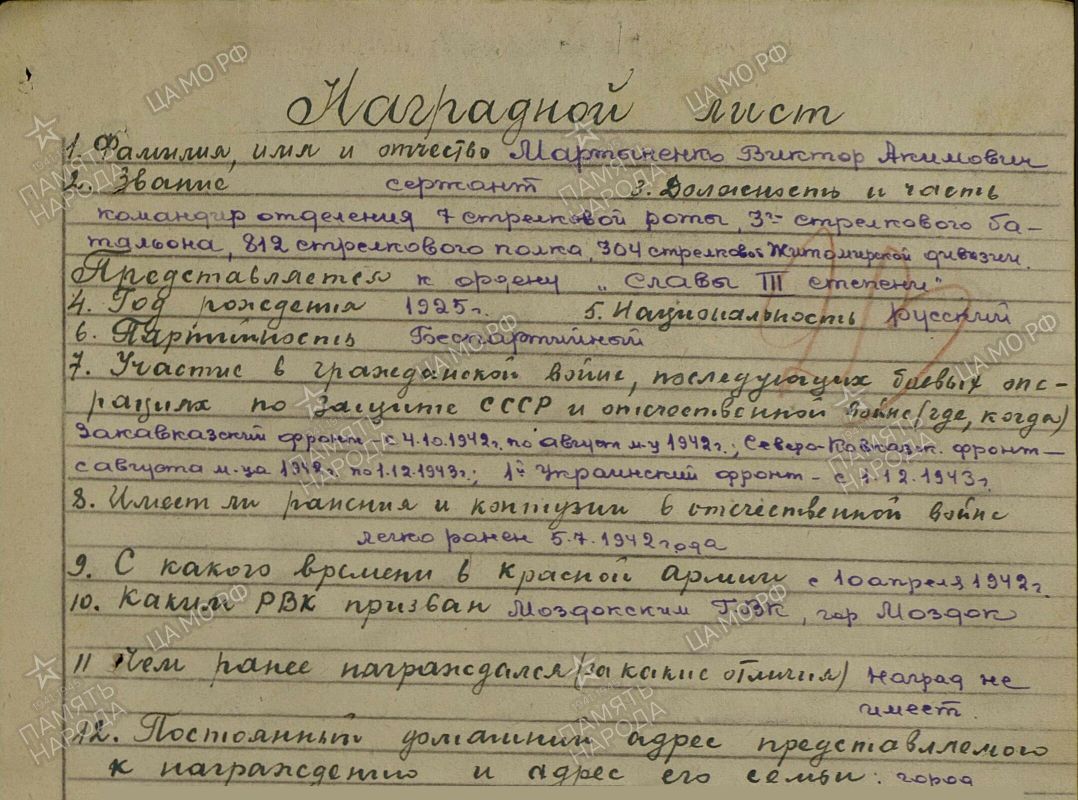 Наградной лист
1. Фамилия, имя и отчество Мартыненко Виктор Акимович
2. Звание сержант 3. Должность и часть
командир отделения 7 стрелковой роты, 3го стрелкового ба-
тальона, 812 стрелкового полка, 304 стрелковой Житомирской дивизии.
Представляется к ордену „Славы III степени"
4. Год рождения 1925 г. 5. Национальность Русский
6. Партийность Беспартийный
7. Участие в гражданской войне, последующих боевых опе-
рациях по защите СССР и отечественной войне (где, когда)
Закавказский фронт - с 4.10.1942г. по август м-ц 1942г.; Северо-Кавказск. фронт -
с августа м-ца 1942г. по 1.12.1943г.; 1й Украинский фронт - с 1.12.1943г.
8. Имеет ли ранения и контузии в отечественной войне
легко ранен 5.7.1942 года
9. С какого времени в красной армии с 10 апреля 1942г.
10. Каким РВК призван Моздокским ГВК, гор Моздок
11 Чем ранее награждался (за какие отличия) Наград не
имеет.
12. Постоянный домашний адрес представляемого
к награждению и адрес его семьи: город
ЦАМО РФ
ПАМЯТЬ НАРОДА